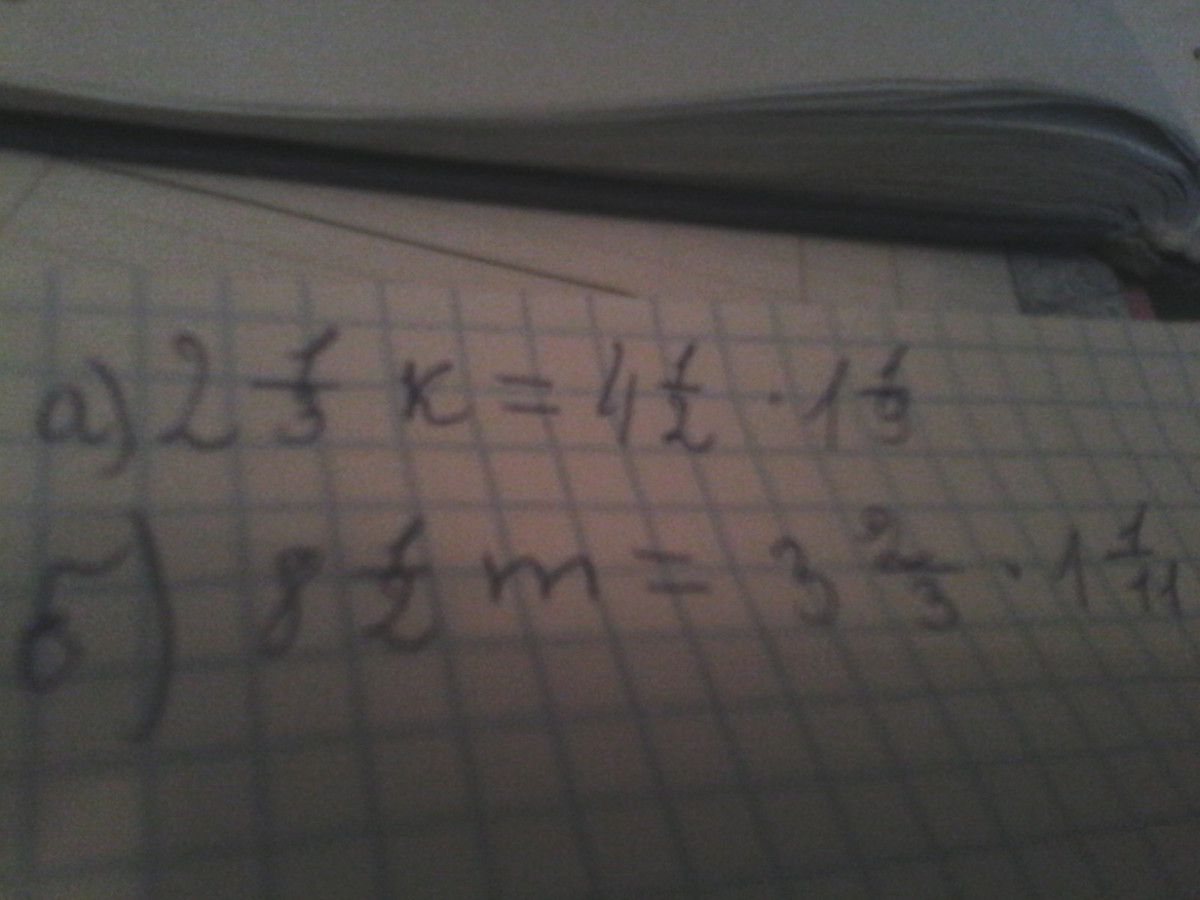 а) 2 1/3 к = 4 1/2 · 1 1/9
б) 8 1/2 m = 3 2/3 · 1 1/11